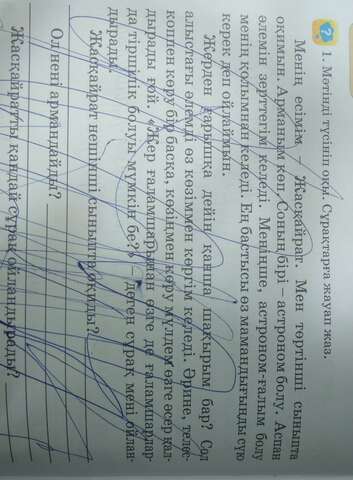 1. Мәтінді түсініп оқы. Сұрақтарға жауап жаз.
Менің есімім – Жасқайрат. Мен төртінші сыныпта
оқимын. Арманым көп. Соның бірі – астроном болу. Аспан
әлемін зерттегім келеді. Меніңше, астроном-ғалым болу
менің қолымнан келеді. Ең бастысы өз мамандығыңды сүю
керек деп ойлаймын.
Жерден ғарышқа дейін қанша шақырым бар? Сол
алыстағы әлемді өз көзіммен көргім келеді. Әрине, телес-
коппен көру бір басқа, көзіңмен көру мүлдем өзге әсер қал-
дырады ғой. «Жер ғаламшарынан өзге де ғаламшарлар-
да тіршілік болуы мүмкін бе?» – деген сұрақ мені ойлан-
дырады.
Жасқайрат нешінші сыныпта оқиды?
Ол нені армандайды?
Жасқайратты қандай сұрақ ойландырады?